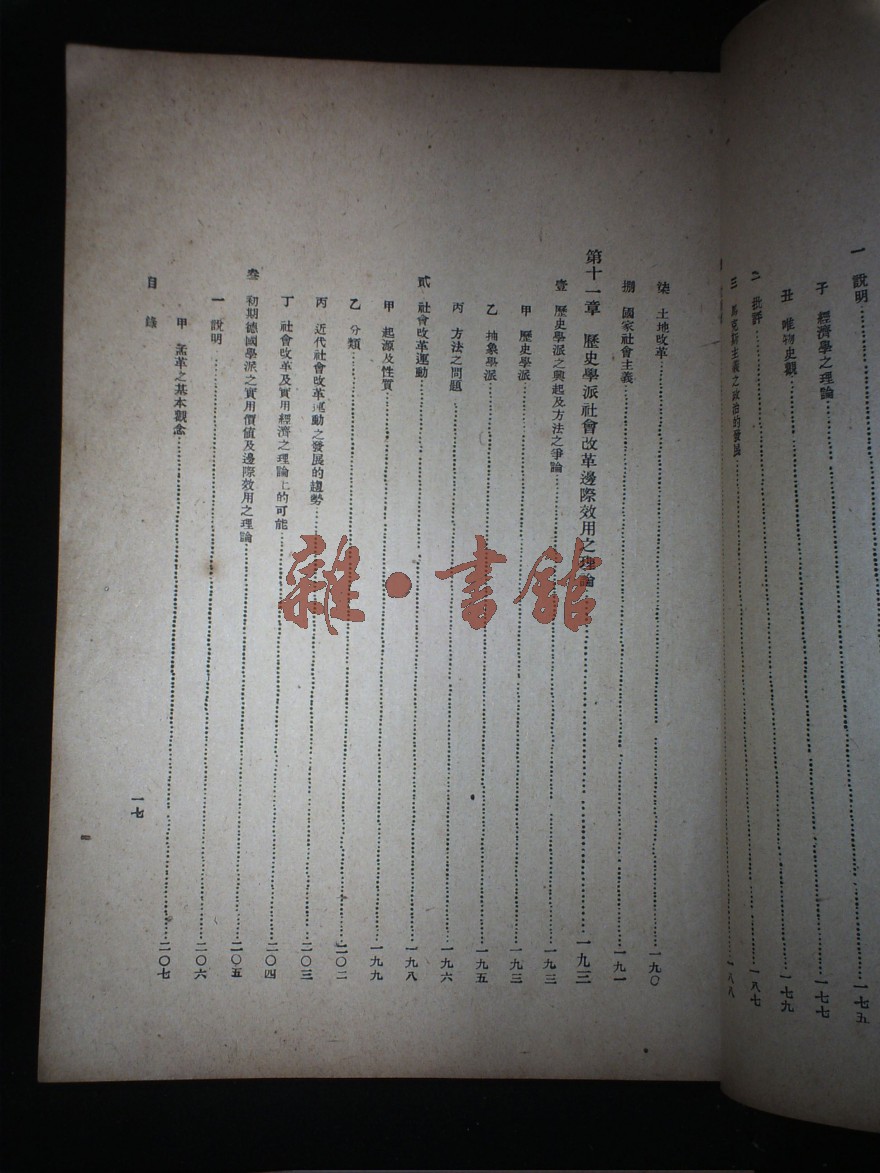 一 說明……一七五
子 經濟學之理論……一七七
丑 唯物史觀……一七九
二 批評……一八七
三 馬克斯主義之政治的發展……一八八
柒 土地改革……一九〇
捌 國家社會主義……一九一
第十一章 歷史學派社會改革邊際效用之理論……一九三
壹 歷史學派之興起及方法之爭論……一九三
甲 歷史學派……一九三
乙 抽象學派……一九五
丙 方法之問題……一九六
貳 社會改革運動……一九八
甲 起源及性質……一九九
乙 分類……二〇二
丙 近代社會改革運動之發展的趨勢……二〇三
丁 社會改革及實用經濟之理論上的可能……二〇四
叄 初期德國學派之實用價值及邊際效用之理論……二〇五
一 說明……二〇六
甲 孟革之基本觀念……二〇七
目錄
一七
雜·書館